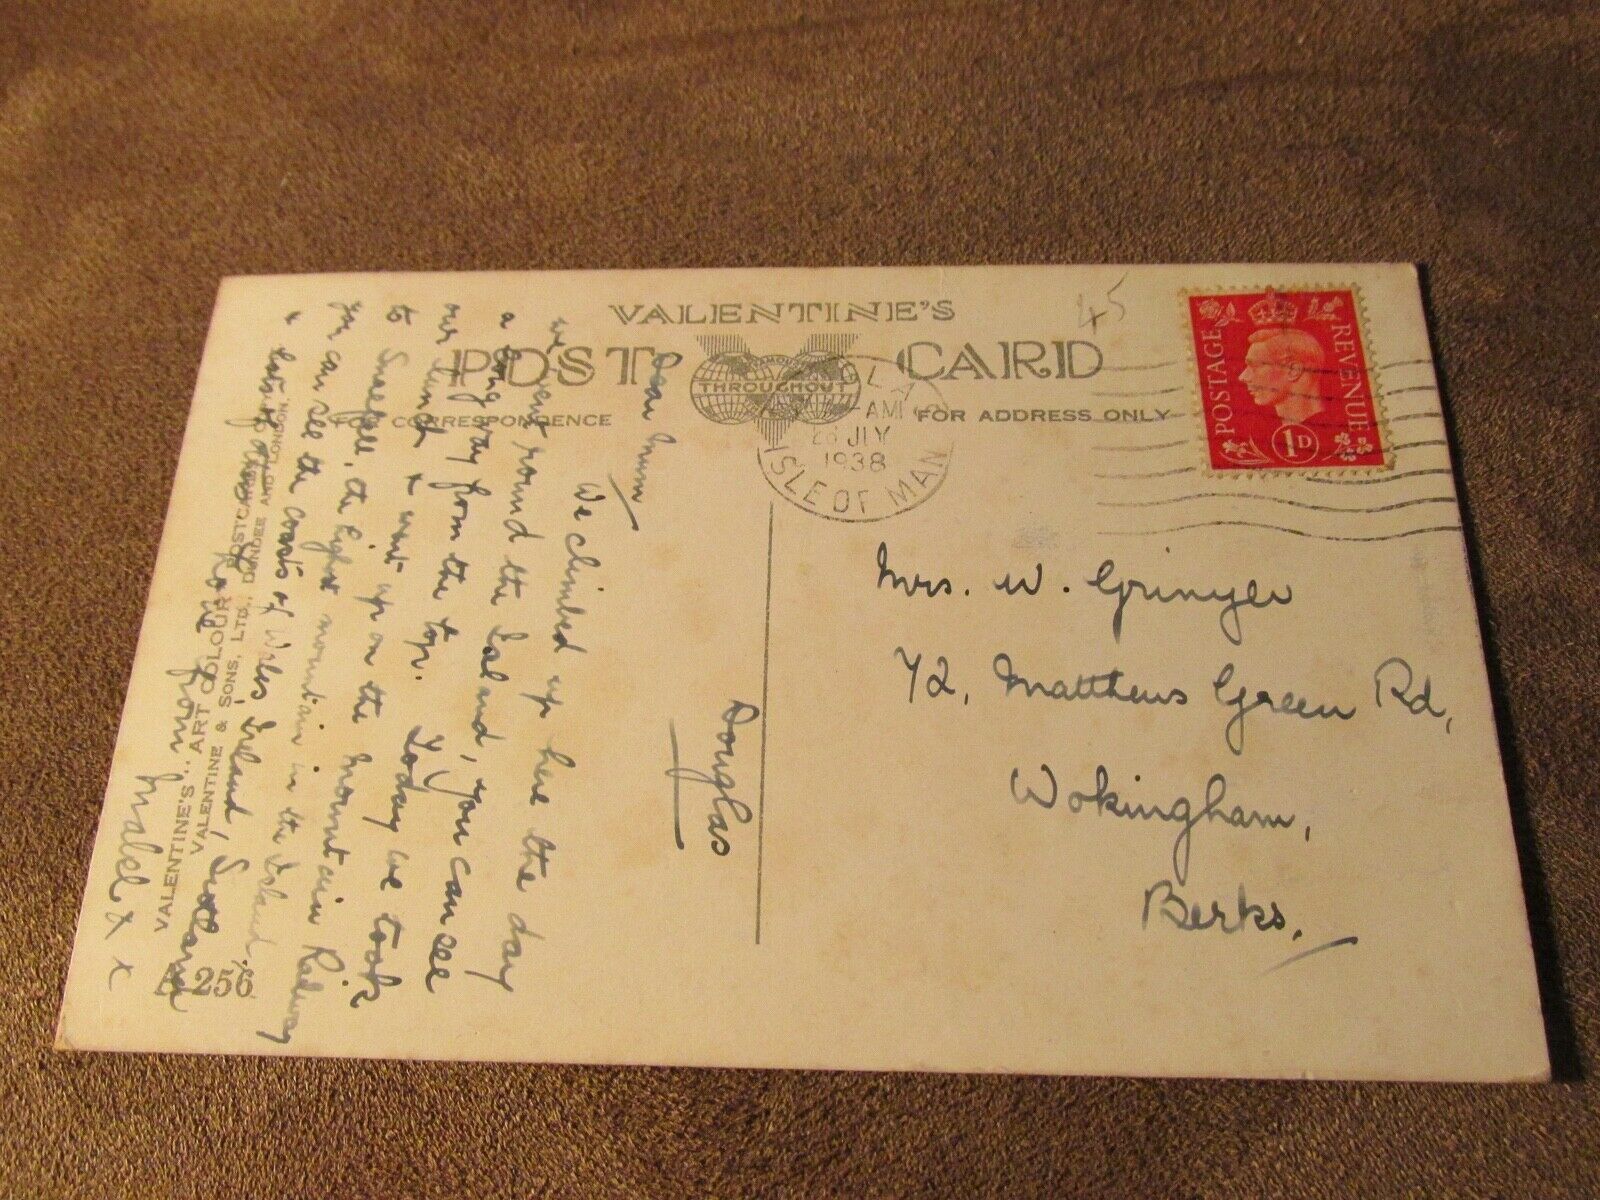 VALENTINE'S
POST CARD
THROUGHOUT
CORRESPONDENCE
FOR ADDRESS ONLY
45
POSTAGE REVENUE
1D
AM
28 JLY
1938
ISLE OF MAN
Douglas
Dear Mum
We climbed up here the day
we went round the Island, you can see
a long way from the top. Today we took
our lunch & went up on the mountain Railway
to Snaefell, the highest mountain in the Island,
you can see the coasts of Wales, Ireland, Scotland
&
Love from
Mabel x x
VALENTINE'S "ART COLOUR" POSTCARD
VALENTINE & SONS, LTD., DUNDEE AND LONDON.
256.
Mrs. W. Grinyer
72, Matthews Green Rd,
Wokingham,
Berks.